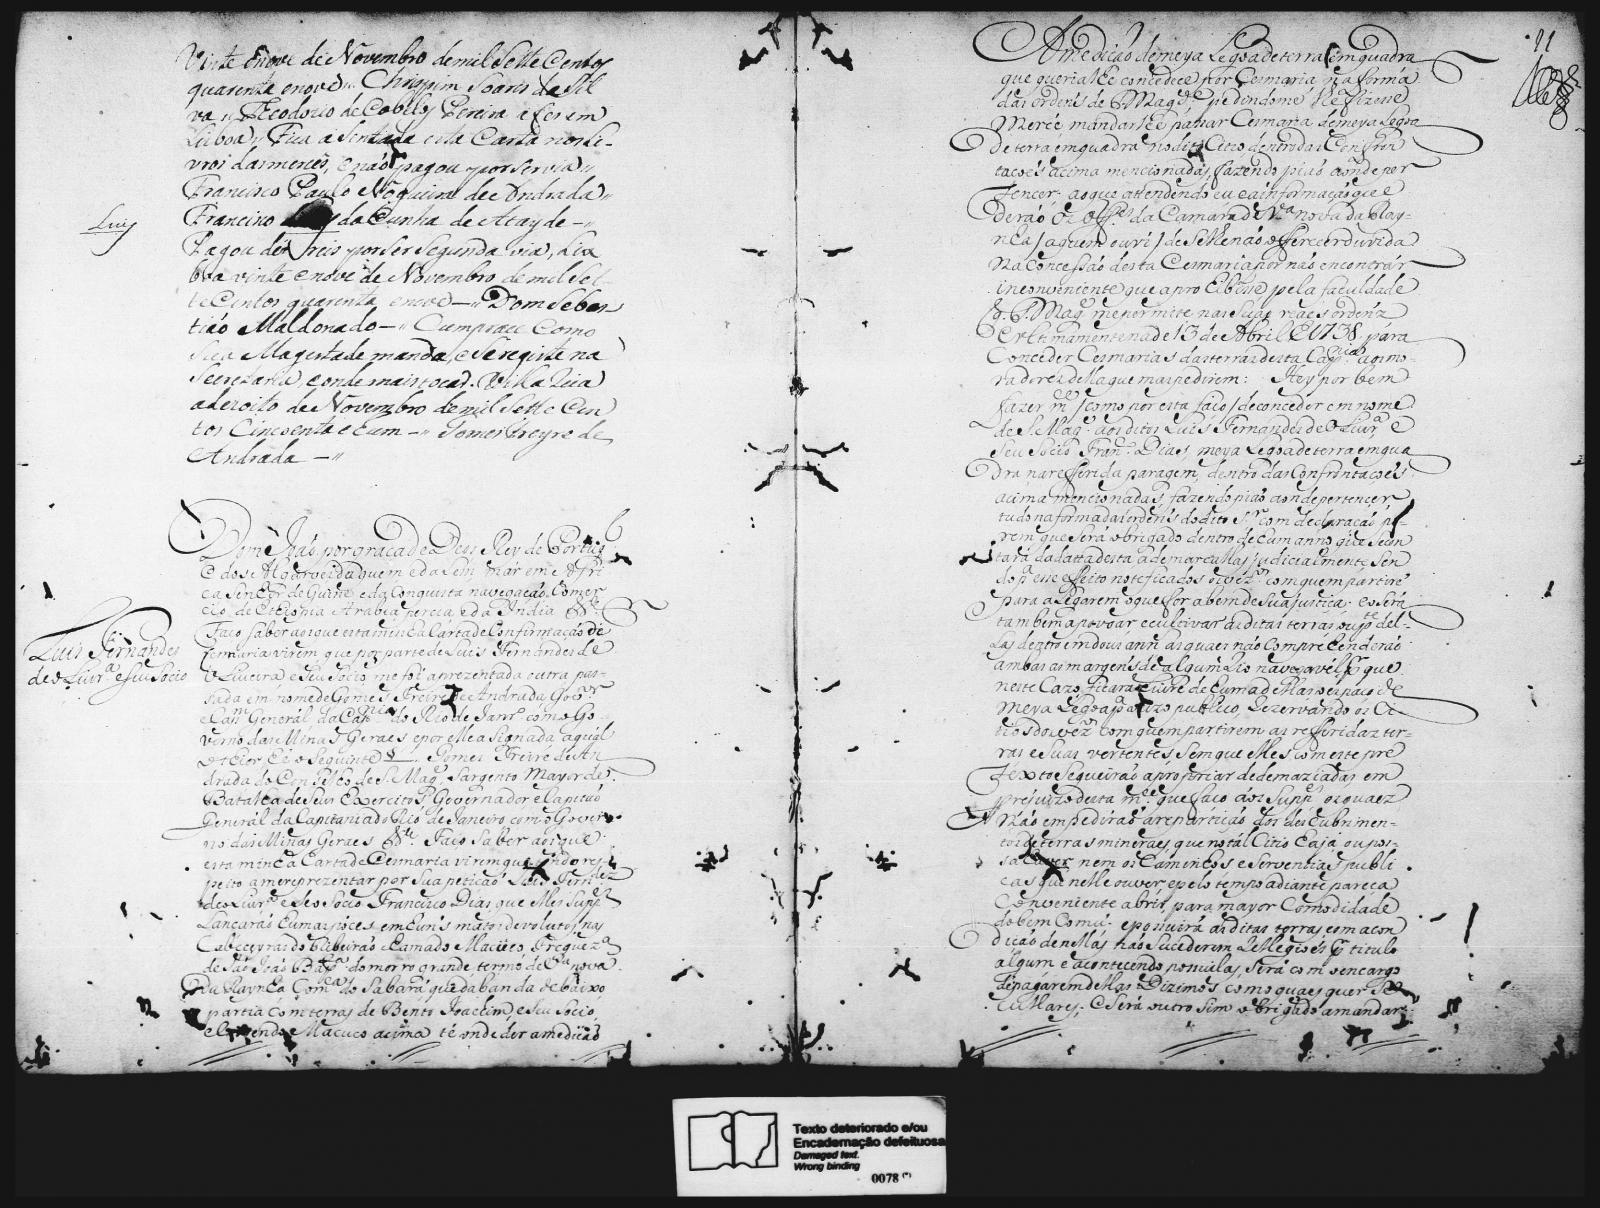 Vinte enove de Novembro demil Sette Centos
quarenta enove Soares da Sil
va Teodozio de Cobellos Pereira a fes em
Lisboa Fica asentada esta Carta nos Li-
vros das merces, e não pagou por ser via
Francisco Paulo Nogueira de Andrada
Francisco da Cunha de Atayde
Luis
Pagou des reis por ser Segunda via, Lix
boa vinte enove de Novembro de mil Set-
te Centos quarenta enove Dom Sebas
tião Maldonado Cumprace Como
Sua Magestade manda, e Seregiste na
Secretaria, eonde mais tocar. Villa Rica
adezoito de Novembro de mil Sette Cen
tos Cincoenta e eum Gomes Freyre de
Andrada
Dom João por graça de Deos Rey de Portug.
e dos Algarves daquem e dalem mar em Afri
ca Sn.or de Guiné e da Conquista navegação, Comer
cio, de Ethiopia Arabia percia e da India &.
Faço saber aos que esta minha Carta de Confirmação de
cesmaria virem que por parte de Luis Fernandes de
Luis Fernandes
de Oliur.a e seu Socio
Oliveira e Seu Socio me foi aprezentada outra pas-
sada em nome de Gomes Freire de Andrada Gov.or
e Cap.m General da Cap.nia do Rio de Janr.o com o Go
verno das Minas Geraes e por elle asignada aqual
o theor he o Seguinte Gomes Freire de An
drada do Conselho de S. Mag.e Sargento Mayor de
Batalha de Seus Exercitos Governador e Capitão
General da Capitania do Rio de Janeiro com o Gover
no das Minas Geraes &. Faço Saber aos que
esta minha Carta de Cesmaria virem que tendo res
peito a me reprezentar por Sua petição Luis Fern.dez
de Oliur.a e Seo Socio Francisco Dias, que elles Supp.es
Lançarão huma posces em huns matos devolutos nas
Cabeceyras do Ribeirão chamado Macuco Freguez.a
de São João Bap.ta do morro grande, termo de V.a nova
da Raynha Com.ca do Sabará que da banda debaixo
partia com terras de Bento Joachim, e Seu Socio,
e correndo Macuco acima té onde der a medição
A medição de meya Legoa de terra em quadra
que queria lhe concedece por Cesmaria na forma
das ordens de S. Mag.de pedindome lhe fizesse
Merce mandarlhe passar Cesmaria de meya Legoa
de terra em quadra no dito Citio dentro das Confron
tações acima mencionadas, fazendo pião aonde per
tencer, ao que attendendo eu e a informação que
derão os off.es da Camara de V.a nova da Ray-
nha / aquem ouvi / de Se lhe não offerecer duvida
na Concessão desta Cesmaria por não encontrar
inconveniente que a prohibisse pela faculdade
q. S. Mag. me permite nas Suas reaes ordens
e ultimamente na de 13 de Abril de 1738, para
Conceder Cesmarias das terras desta Cap.nia aos mo-
radores della que mas pedirem: Hey por bem
fazer m.ce / como por esta faço / de conceder em nome
de S. Mag. aos ditos Luis Fernandes de Oliur.a e
Seu Socio Fran.co Dias, meya Legoa de terra em qua
dra na referida paragem, dentro das Confrontacoes
acima mencionadas, fazendo pião aonde pertencer
tudo na forma das ordens do dito S.r com declaração po-
rem que Será obrigado dentro de hum anno que se con
tará da datta desta a demarcallas judicialmente Sen
do p.a esse effeito noteficados os vez.os com quem partire
para alegarem o que for a bem de Sua justiça: e o Será
tambem a povoar e cultivar as ditas terras ou p.te del-
las dentro em dous ann. as quaes não Comprehenderão
ambas as margens de algum Rio navegavel p.r que
neste Cazo ficará Livre de huma dellas o espaço de
meya Legoa p.a o uzo publico, Rezervando os Ci-
tios dos vez.os com quem partirem as refferidas ter-
ras e Suas vertentes, Sem que elles com este pre
texto Se queirão apropriar de demaziadas em
prejuizo desta m.ce que faço aos Supp.es os quaez
não empedirão a repartição dos descubrimen-
tos de terras mineraes que no tal Citio haja ou pos-
sa haver nem os Caminhos e Serventias publi
cas que nelle ouver, e pelo tempo adiante pareça
Conveniente abrir, para mayor Comodidade
do bem Comũ: e possuirá as ditas terras com a con
dição de nellas não Sucederem Relligiões p.r titulo
algum e acontecendo possuilas, Será com o encargo
de pagarem dellas Dizimos como quaesquer Se
culares; e Será outro sim obrigado a mandar
Texto deteriorado e/ou
Encadernação defeituosa
Damaged text.
Wrong binding
0078 (*)